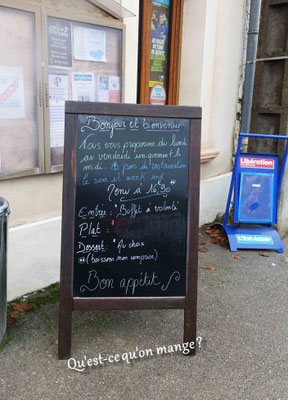 Bonjour et bienvenue
Nous vous proposons du lundi
au vendredi uniquement le
midi. Pas de restauration
le soir et week end
Menu à 16,90
Entrée: "Buffet à volonté"
Plat:
Dessert: "Au choix
(boisson non comprise)
Bon appétit
Libération
Qu'est-ce qu'on mange ?